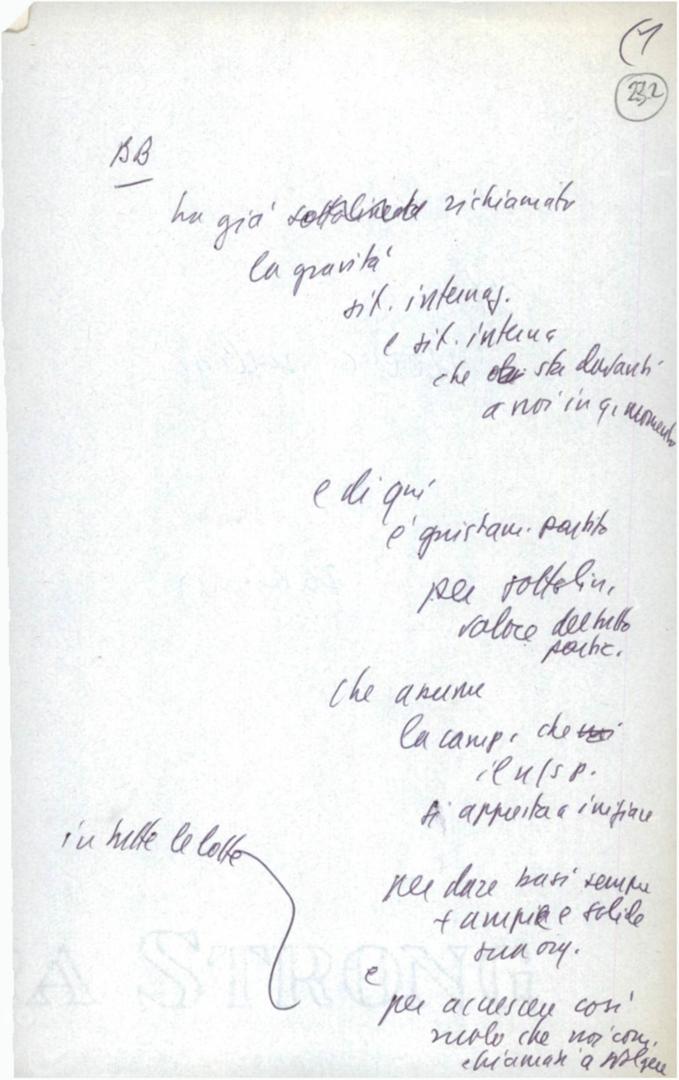 (1
232
BB
ha già sottolineato richiamato
la gravità
sit. internaz.
e sit. interna
che sta davanti
a noi in q. momento
e di qui
è giustam. partito
per sottolin.
valore del tutto
partic.
che assume
la camp. che noi
il n/s p.
si appresta a iniziare
in tutte le lotte
per dare basi sempre
+ ampie e solide
sua org.
e
per accrescere così
ruolo che noi com.
chiamati a svolgere